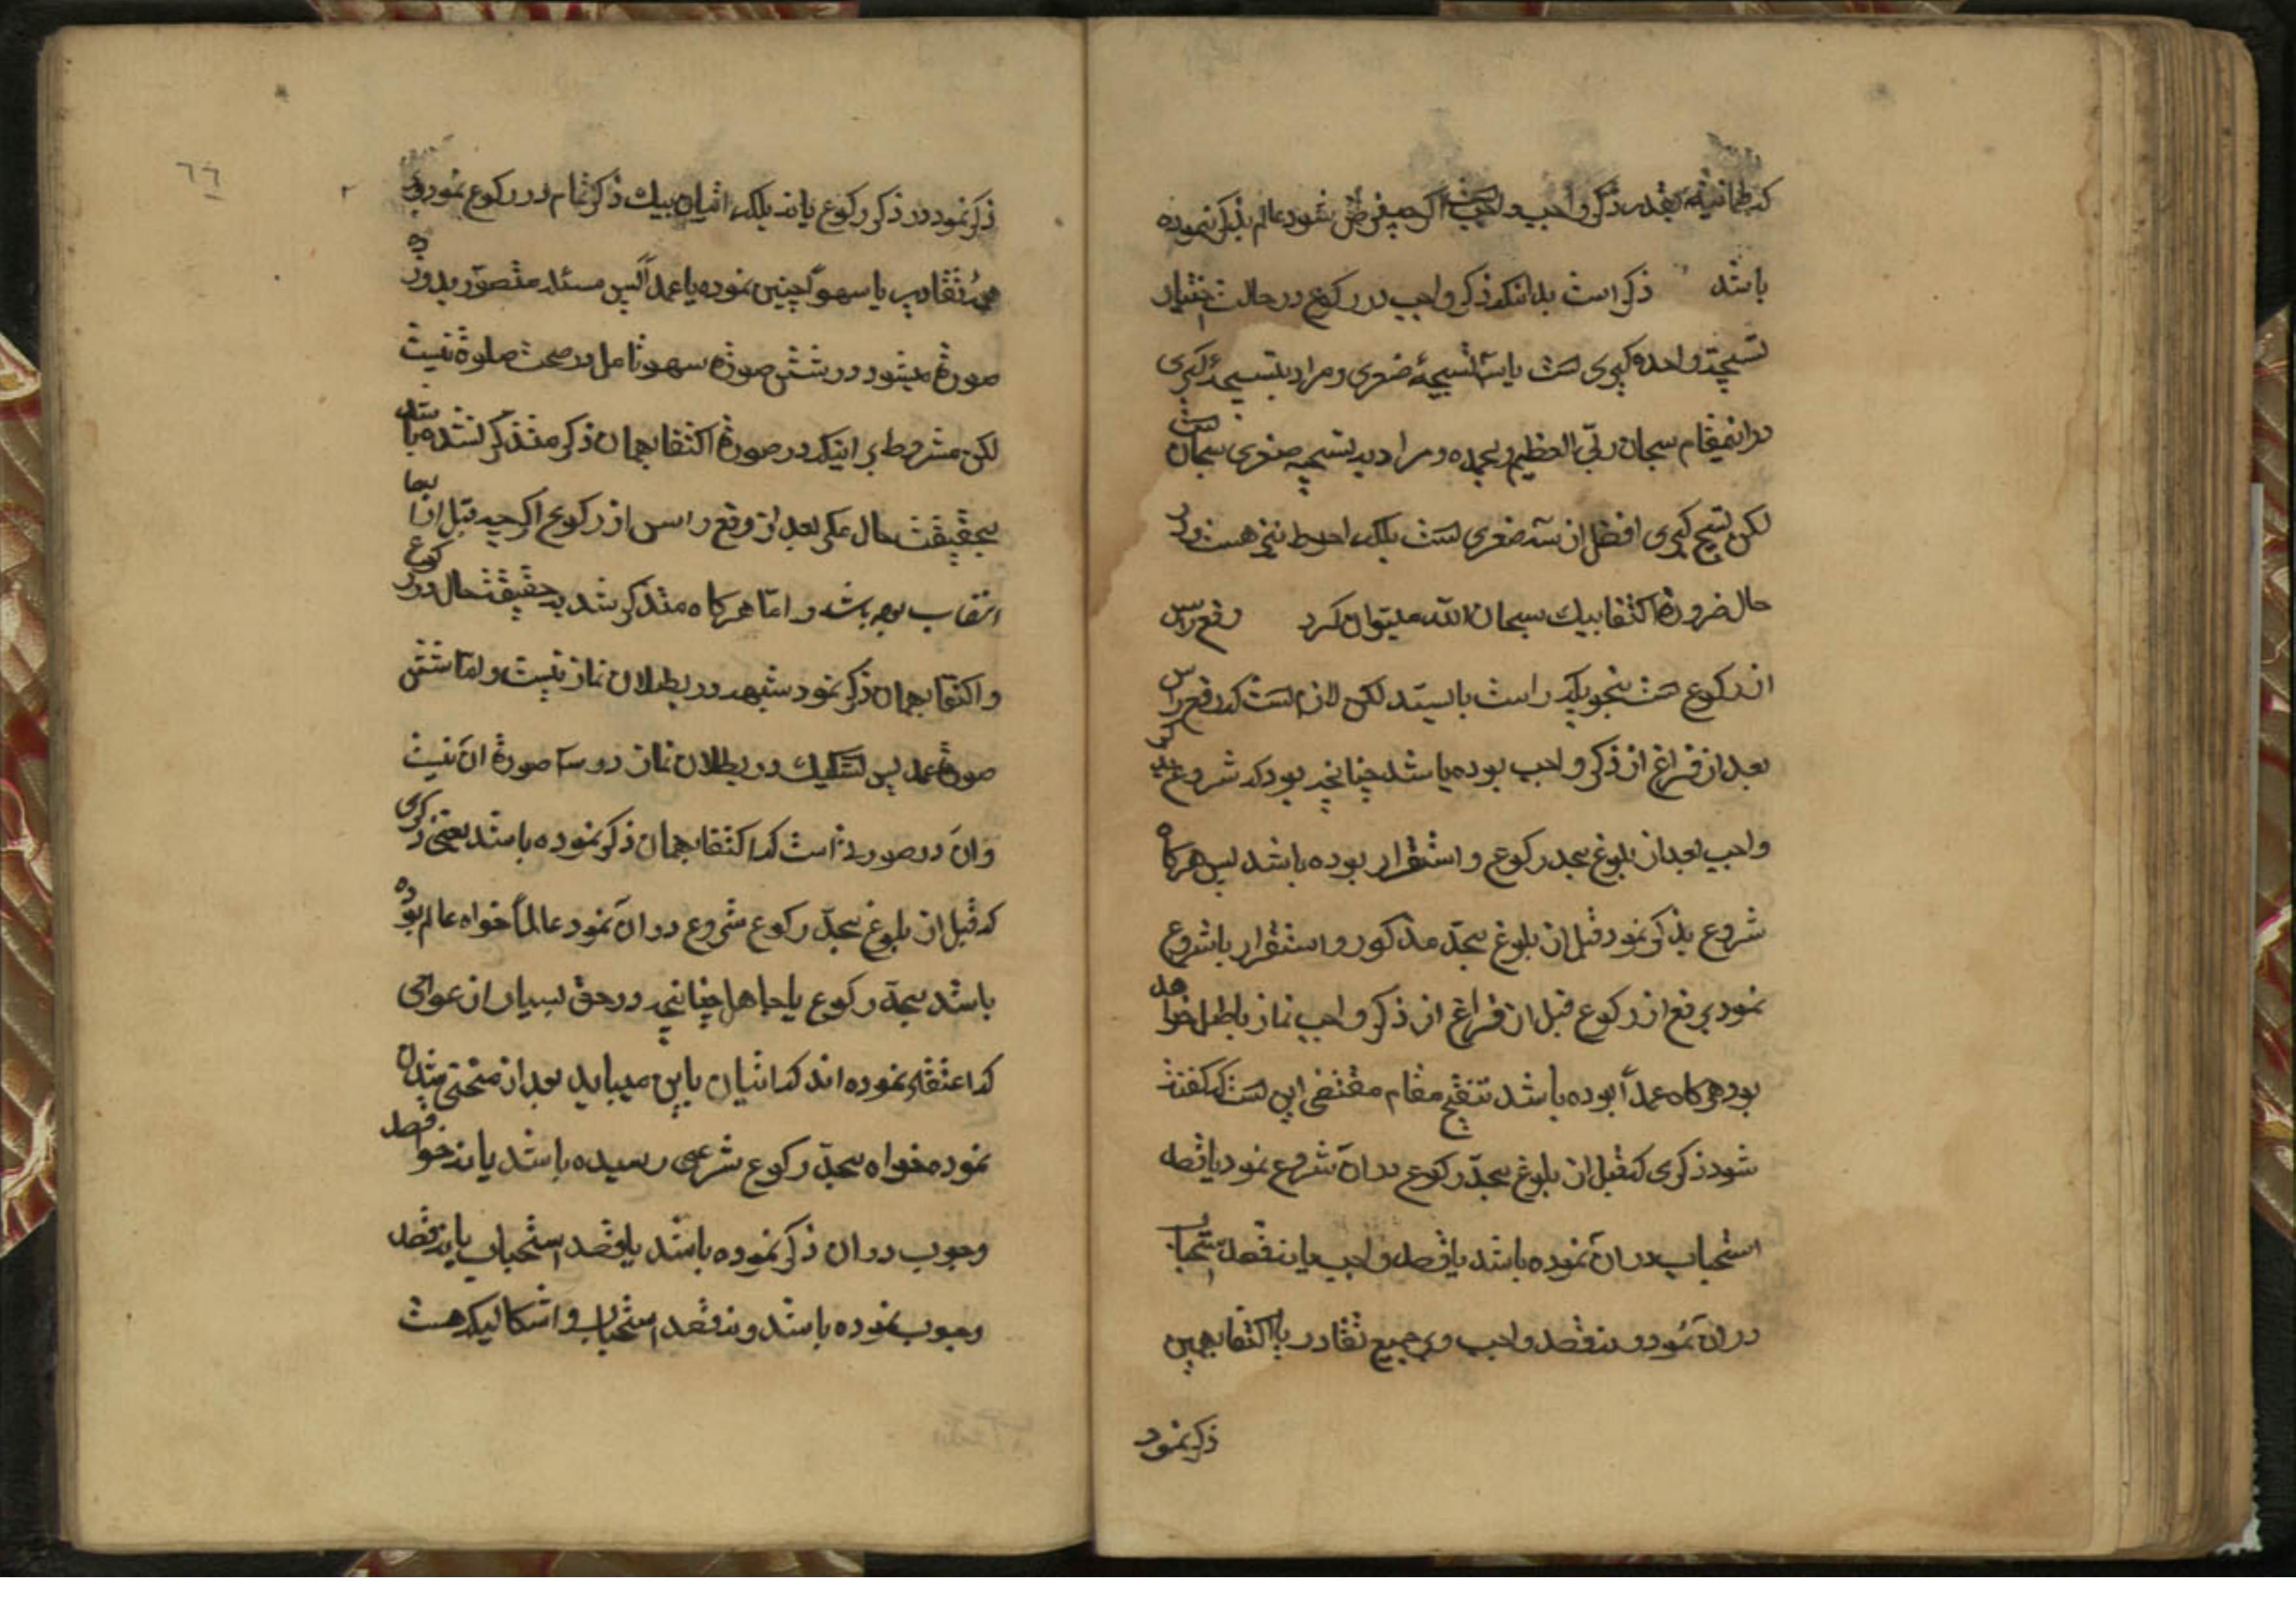 که طمانینه بقدر ذکر واجب واجبست اگر چه فرض شود عالم بذکر نبوده
باشد ذکر است بدانکه ذکر واجب در رکوع در حالت اختیار
تسبیحة واحده کبری است یا سه تسبیحهٔ صغری و مراد بتسبیحهٔ کبری
در اینمقام سبحان ربّی العظیم و بحمده و مراد به تسبیحه صغری سبحان الله است
لکن تسبیح کبری افضل از سه صغری است بلکه احوط نیز هست و در
حال ضرورة اکتفا بیک سبحان الله میتوان کرد رفع راس
از رکوع است بنحویکه راست بایستد لکن لازم است که رفع راس
بعد از فراغ از ذکر واجب بوده باشد چنانچه بود که شروع بذکر
واجب بعد از بلوغ بحد رکوع و استقرار بوده باشد پس هرکاه
شروع بذکر نمود قبل از بلوغ بحدّ مذکور و استقرار یا شروع
نمود برفع از رکوع قبل از فراغ از ذکر واجب نماز باطل خواهد
بود هرکاه عمداً بوده باشد تنقیح مقام مقتضی این است که کفته
شود ذکری که قبل از بلوغ بحدّ رکوع در آن شروع نمود یا قصد
استحباب در آن نموده باشد یا قصد واجب یا نه قصد استحباب
در آن نمود و نه قصد واجب و بر جمیع تقادیر یا اکتفا بهمین
ذکر نمود
٦٦
ذکر نمود در ذکر رکوع یا نه بلکه اتیان بیک ذکر تمام در رکوع نمود و بر
هر تقادیر یا سهواً چنین نموده یا عمداً پس مسئله متصوّر بدوازده
صورة میشود در شش صورة سهو تامل در صحت صلوة نیست
لکن مشروط بر اینکه در صورة اکتفا بهمان ذکر متذکر نشده باشد
بحقیقت حال مکر بعد از رفع راس از رکوع اکرچه قبل از
انتصاب بوده باشد و امّا هرکاه متذکر شد به حقیقت حال در رکوع
و اکتفا بهمان ذکر نمود شبهه در بطلان نماز نیست و امّا شش
صورة عمد پس تشکیک در بطلان نماز در سه صورة آن نیست
و آن در صورتی است که اکتفا بهمان ذکر نموده باشد یعنی ذکری
که قبل از بلوغ بحدّ رکوع شروع در آن نمود عالماً خواه عالم بوده
باشد بحدّ رکوع یا جاهل چنانچه در حق بسیار از عوام
که اعتقاد نموده اند که اتیان باین میباید بعد از منحنی شدن
نموده خواه بحدّ رکوع شرعی رسیده باشد یا نه خواه قصد
وجوب در آن ذکر نموده باشد یا قصد استحباب یا نه قصد
وجوب نموده باشد و نه قصد استحباب و اشکالیکه هست